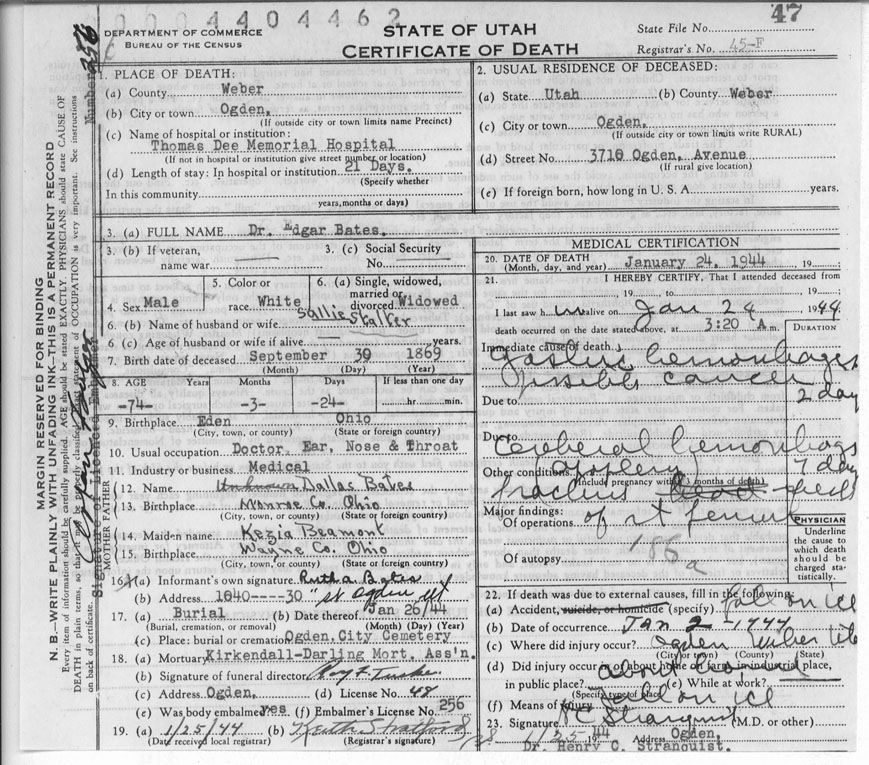 0004404462
47
DEPARTMENT OF COMMERCE
BUREAU OF THE CENSUS
STATE OF UTAH
CERTIFICATE OF DEATH
State File No.
Registrar's No. 45-F
MARGIN RESERVED FOR BINDING
N. B.—WRITE PLAINLY WITH UNFADING INK—THIS IS A PERMANENT RECORD
Every item of information should be carefully supplied. AGE should be stated EXACTLY. PHYSICIANS should state CAUSE OF
DEATH in plain terms, so that it may be properly classified. Exact statement of OCCUPATION is very important. See instructions
on back of certificate.
Signature of Licensed Embalmer
Number 256
1. PLACE OF DEATH:
(a) County Weber
(b) City or town Ogden,
(If outside city or town limits name Precinct)
(c) Name of hospital or institution:
Thomas Dee Memorial Hospital
(If not in hospital or institution give street number or location)
(d) Length of stay: In hospital or institution 21 Days.
(Specify whether
In this community
years, months or days)
2. USUAL RESIDENCE OF DECEASED:
(a) State Utah (b) County Weber
(c) City or town Ogden,
(If outside city or town limits write RURAL)
(d) Street No. 3710 Ogden, Avenue
(If rural give location)
(e) If foreign born, how long in U. S. A. years.
3. (a) FULL NAME Dr. Edgar Bates.
3. (b) If veteran,
name war
3. (c) Social Security
No.
4. Sex Male
5. Color or
race White
6. (a) Single, widowed,
married or
divorced Widowed
6. (b) Name of husband or wife Sallie Stalker
6. (c) Age of husband or wife if alive years.
7. Birth date of deceased September 30 1869
(Month) (Day) (Year)
8. AGE Years Months Days If less than one day
-74- -3- -24- hr. min.
9. Birthplace Eden Ohio
(City, town, or county) (State or foreign country)
10. Usual occupation Doctor, Ear, Nose & Throat
11. Industry or business Medical
FATHER
12. Name Unknown Dallas Bates
13. Birthplace Monroe Co. Ohio
(City, town, or county) (State or foreign country)
MOTHER
14. Maiden name Kezia Beamont
15. Birthplace Wayne Co. Ohio
(City, town, or county) (State or foreign country)
16. (a) Informant's own signature Ruth a Bates
(b) Address 1040----30 "st Ogden Ut
17. (a) Burial (b) Date thereof Jan 26/44
(Burial, cremation, or removal) (Month) (Day) (Year)
(c) Place: burial or cremation Ogden, City Cemetery
18. (a) Mortuary Kirkendall-Darling Mort. Ass'n.
(b) Signature of funeral director
(c) Address Ogden, (d) License No. 48
(e) Was body embalmed yes (f) Embalmer's License No. 256
19. (a) 1/25/44 (b)
(Date received local registrar) (Registrar's signature)
MEDICAL CERTIFICATION
20. DATE OF DEATH
(Month, day, and year) January 24, 1944 19
21. I HEREBY CERTIFY, That I attended deceased from
19 to 19
I last saw h im alive on Jan 24 1944
death occurred on the date stated above, at 3:20 A m.
DURATION
Immediate cause of death
Gastric hemorrhages
possible cancer
Due to 2 day
Due to
Cerebral hemorrhage
Other conditions (apoplexy) 7 day
(Include pregnancy within 3 months of death)
fracture
Major findings:
Of operations of rt femur
Of autopsy 186a
PHYSICIAN
Underline
the cause to
which death
should be
charged sta-
tistically.
22. If death was due to external causes, fill in the following:
(a) Accident, suicide, or homicide (specify) fall on ice
(b) Date of occurrence Jan 2 - 1944
(c) Where did injury occur? Ogden Weber
(City or town) (County) (State)
(d) Did injury occur in or about home or farm in industrial place,
about
in public place? (e) While at work?
(Specify type of place)
(f) Means of injury fell on ice
23. Signature H C Stranquist (M.D. or other)
1/25 1944 Address Ogden,
Dr. Henry C. Stranquist.